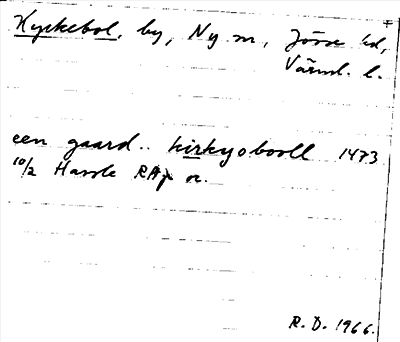 Kyrkebol, by, Ny sn, Jösse hd,
Värml. l.
een gaard.. kirkyobooll 1473
10/2 Hassle RAp or.
R. D. 1966.